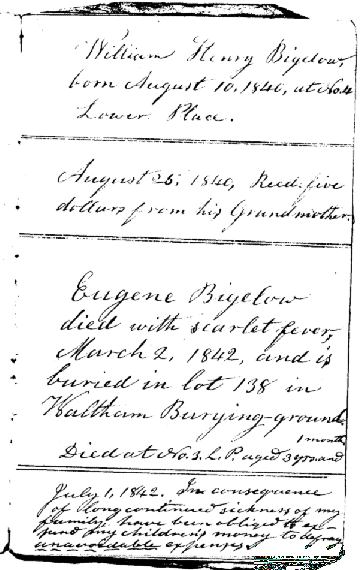 William Henry Bigelow,
born August 10, 1840, at No. 4
Lower Place.
August 25, 1840, Recd. five
dollars from his Grandmother.
Eugene Bigelow
died with scarlet fever,
March 2, 1842, and is
buried in lot 138 in
Waltham Burying-ground.
1 month
Died at No. 3. L. P. aged 3 yrs and
July 1, 1842. In consequence
of long continued sickness of my
family, have been obliged to ex-
pend my children's money to defray
unavoidable expenses.